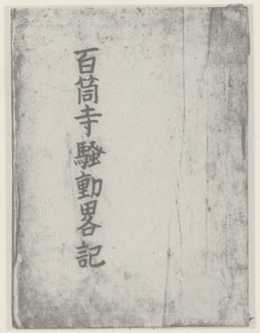 百筒寺騒動畧記